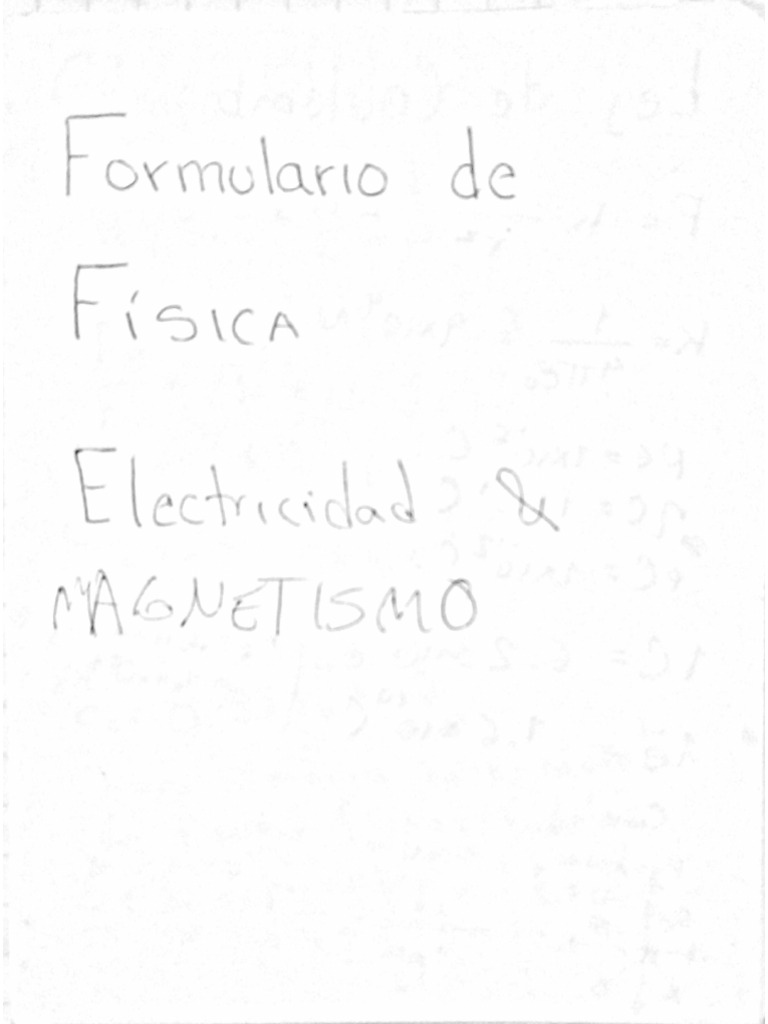 Formulario de
Física
Electricidad &
MAGNETISMO